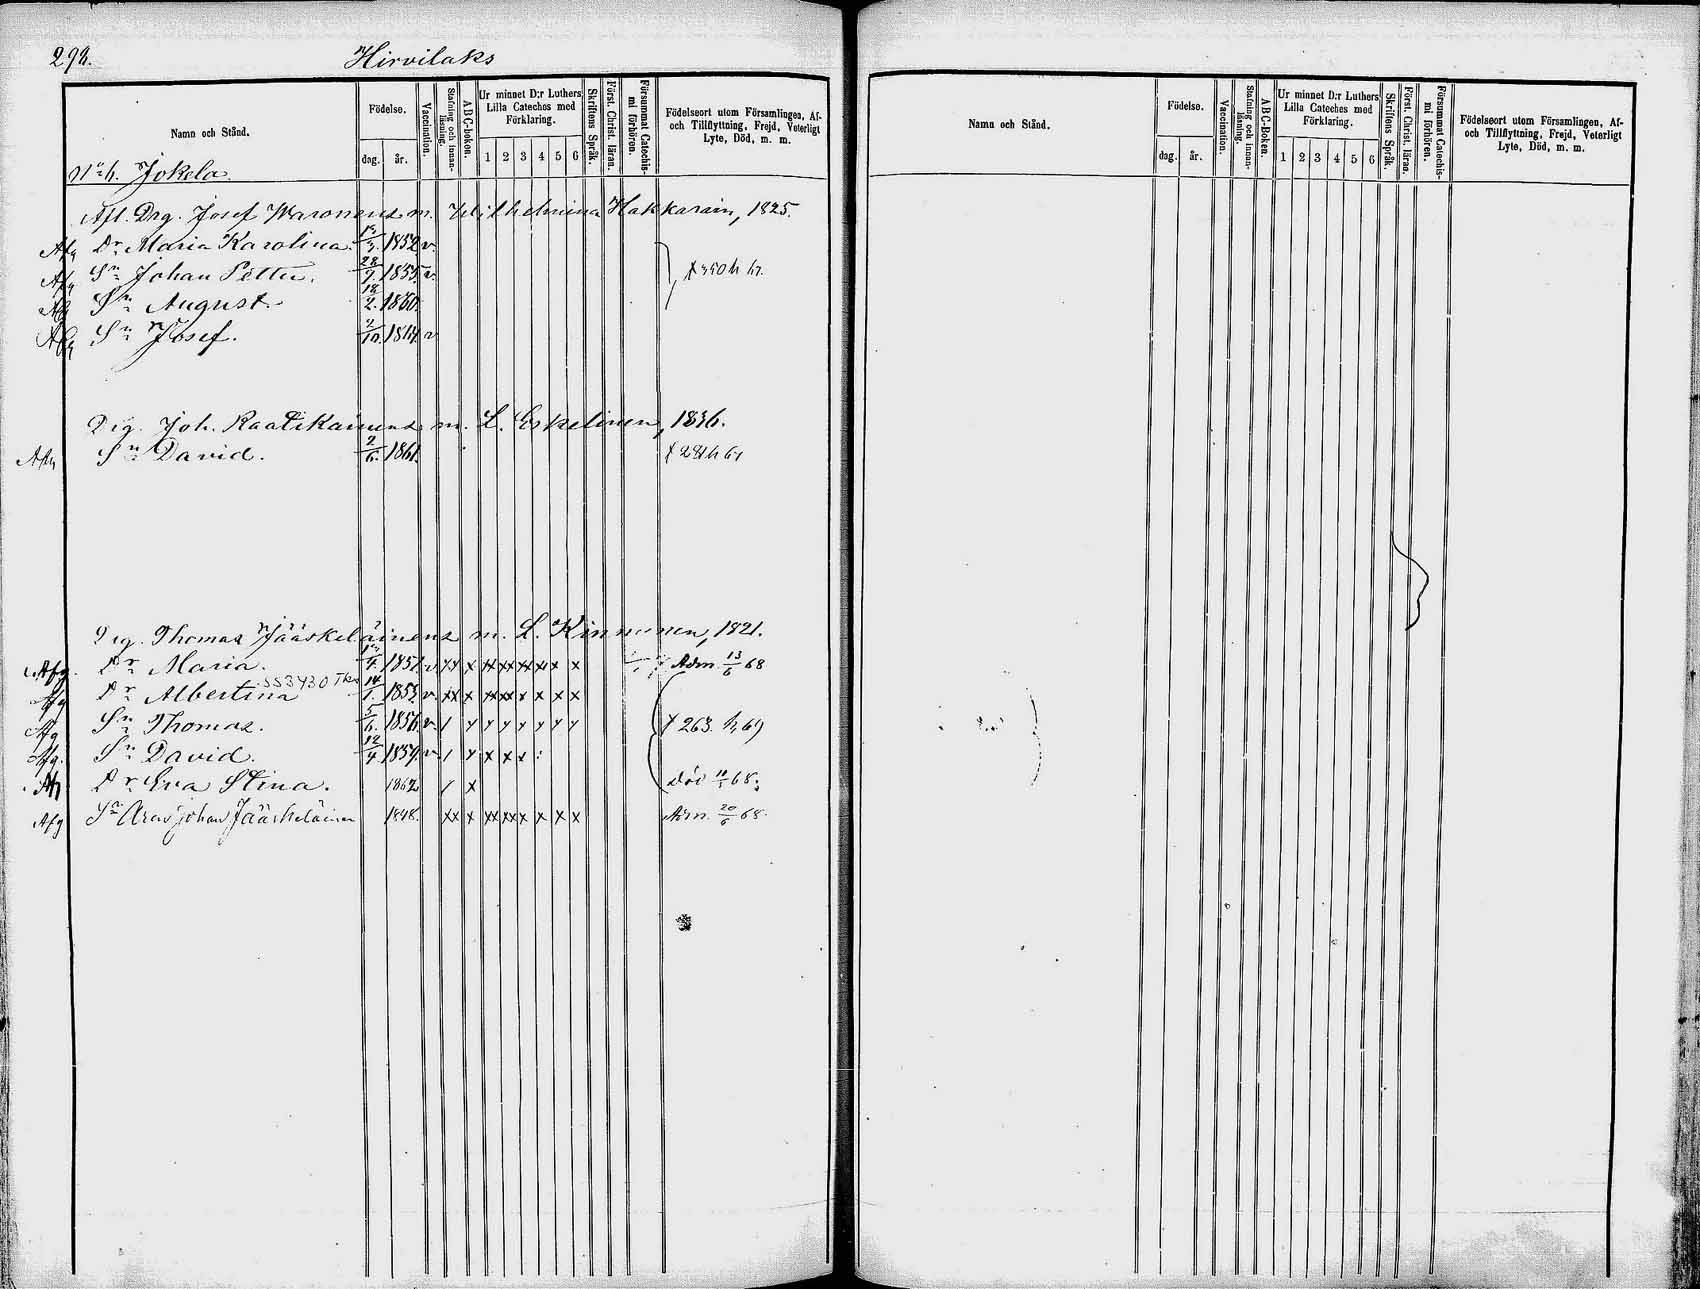 298. Hirvilaks
Namn och Stånd. Födelse. dag. år. Vaccination. Stafning och innanläsning. ABC-boken. Ur minnet D:r Luthers Lilla Cateches med Förklaring. 1 2 3 4 5 6 Skriftens Språk. Först. Christ. läran. Försummat Catechismi förhören. Födelseort utom Församlingen, Af- och Tillflyttning, Frejd, Veterligt Lyte, Död, m. m.
Jokela.
Afl. Drg. Josef Waronens m. Wilhelmina Hakkarain, 1825.
Afg Dr Maria Karolina. 1852 v.
Afg Sn Johan Petter. 28/9. 1855. v.
Afg Sn August. 18/2. 1860.
Afg Sn Josef. 2/10. v
Drg. Joh. Raatikainens m. L. Eskelinen, 1836.
Afg Sn David. 2/6. 1861.
Drg. Thomas Jääskeläinens m. L. Kinnunen, 1821.
Afg. Dr Maria. 1851. v. xx x xx xx xx xx x x Adm. 13/6 68
Afg Dr Albertina 14/1. 1853. v. xx x xx xx x x x x
Afg Sn Thomas. 5/6. 1856. v. / y y y y y y y x 263. h. 69
Afg. Sn David. 12/4 1859. v. / y x x x :
Afg Dr Eva Stina. 1862 / x
Afg Sn Johan Jääskeläinen 1848. xx x xx xx x x x x Adm. 20/6 68.
Namn och Stånd. Födelse. dag. år. Vaccination. Stafning och innanläsning. ABC-Boken. Ur minnet D:r Luthers Lilla Cateches med Förklaring. 1 2 3 4 5 6 Skriftens Språk. Först. Christ. läran. Försummat Catechismi förhören. Födelseort utom Församlingen, Af- och Tillflyttning, Frejd, Veterligt Lyte, Död, m. m.